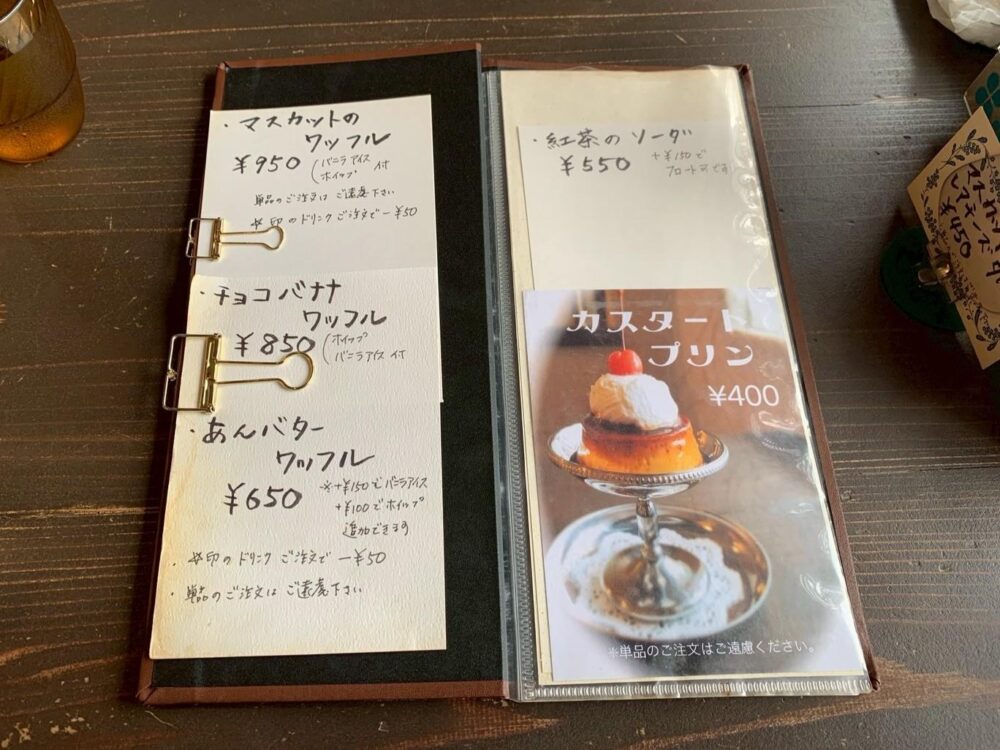 ・マスカットの
ワッフル
¥950 (バニラアイス
ホイップ 付
単品のご注文は ご遠慮下さい
☆印のドリンクご注文で -¥50
・チョコバナナ
ワッフル
¥850 (ホイップ
バニラアイス 付
・あんバター
ワッフル
¥650 ※+¥150でバニラアイス
+¥100でホイップ
追加できます
・☆印のドリンク ご注文で -¥50
・単品のご注文は ご遠慮下さい
・紅茶のソーダ
¥550 +¥150で
フロート可です
カスタード
プリン
¥400
※単品のご注文はご遠慮ください。
¥450